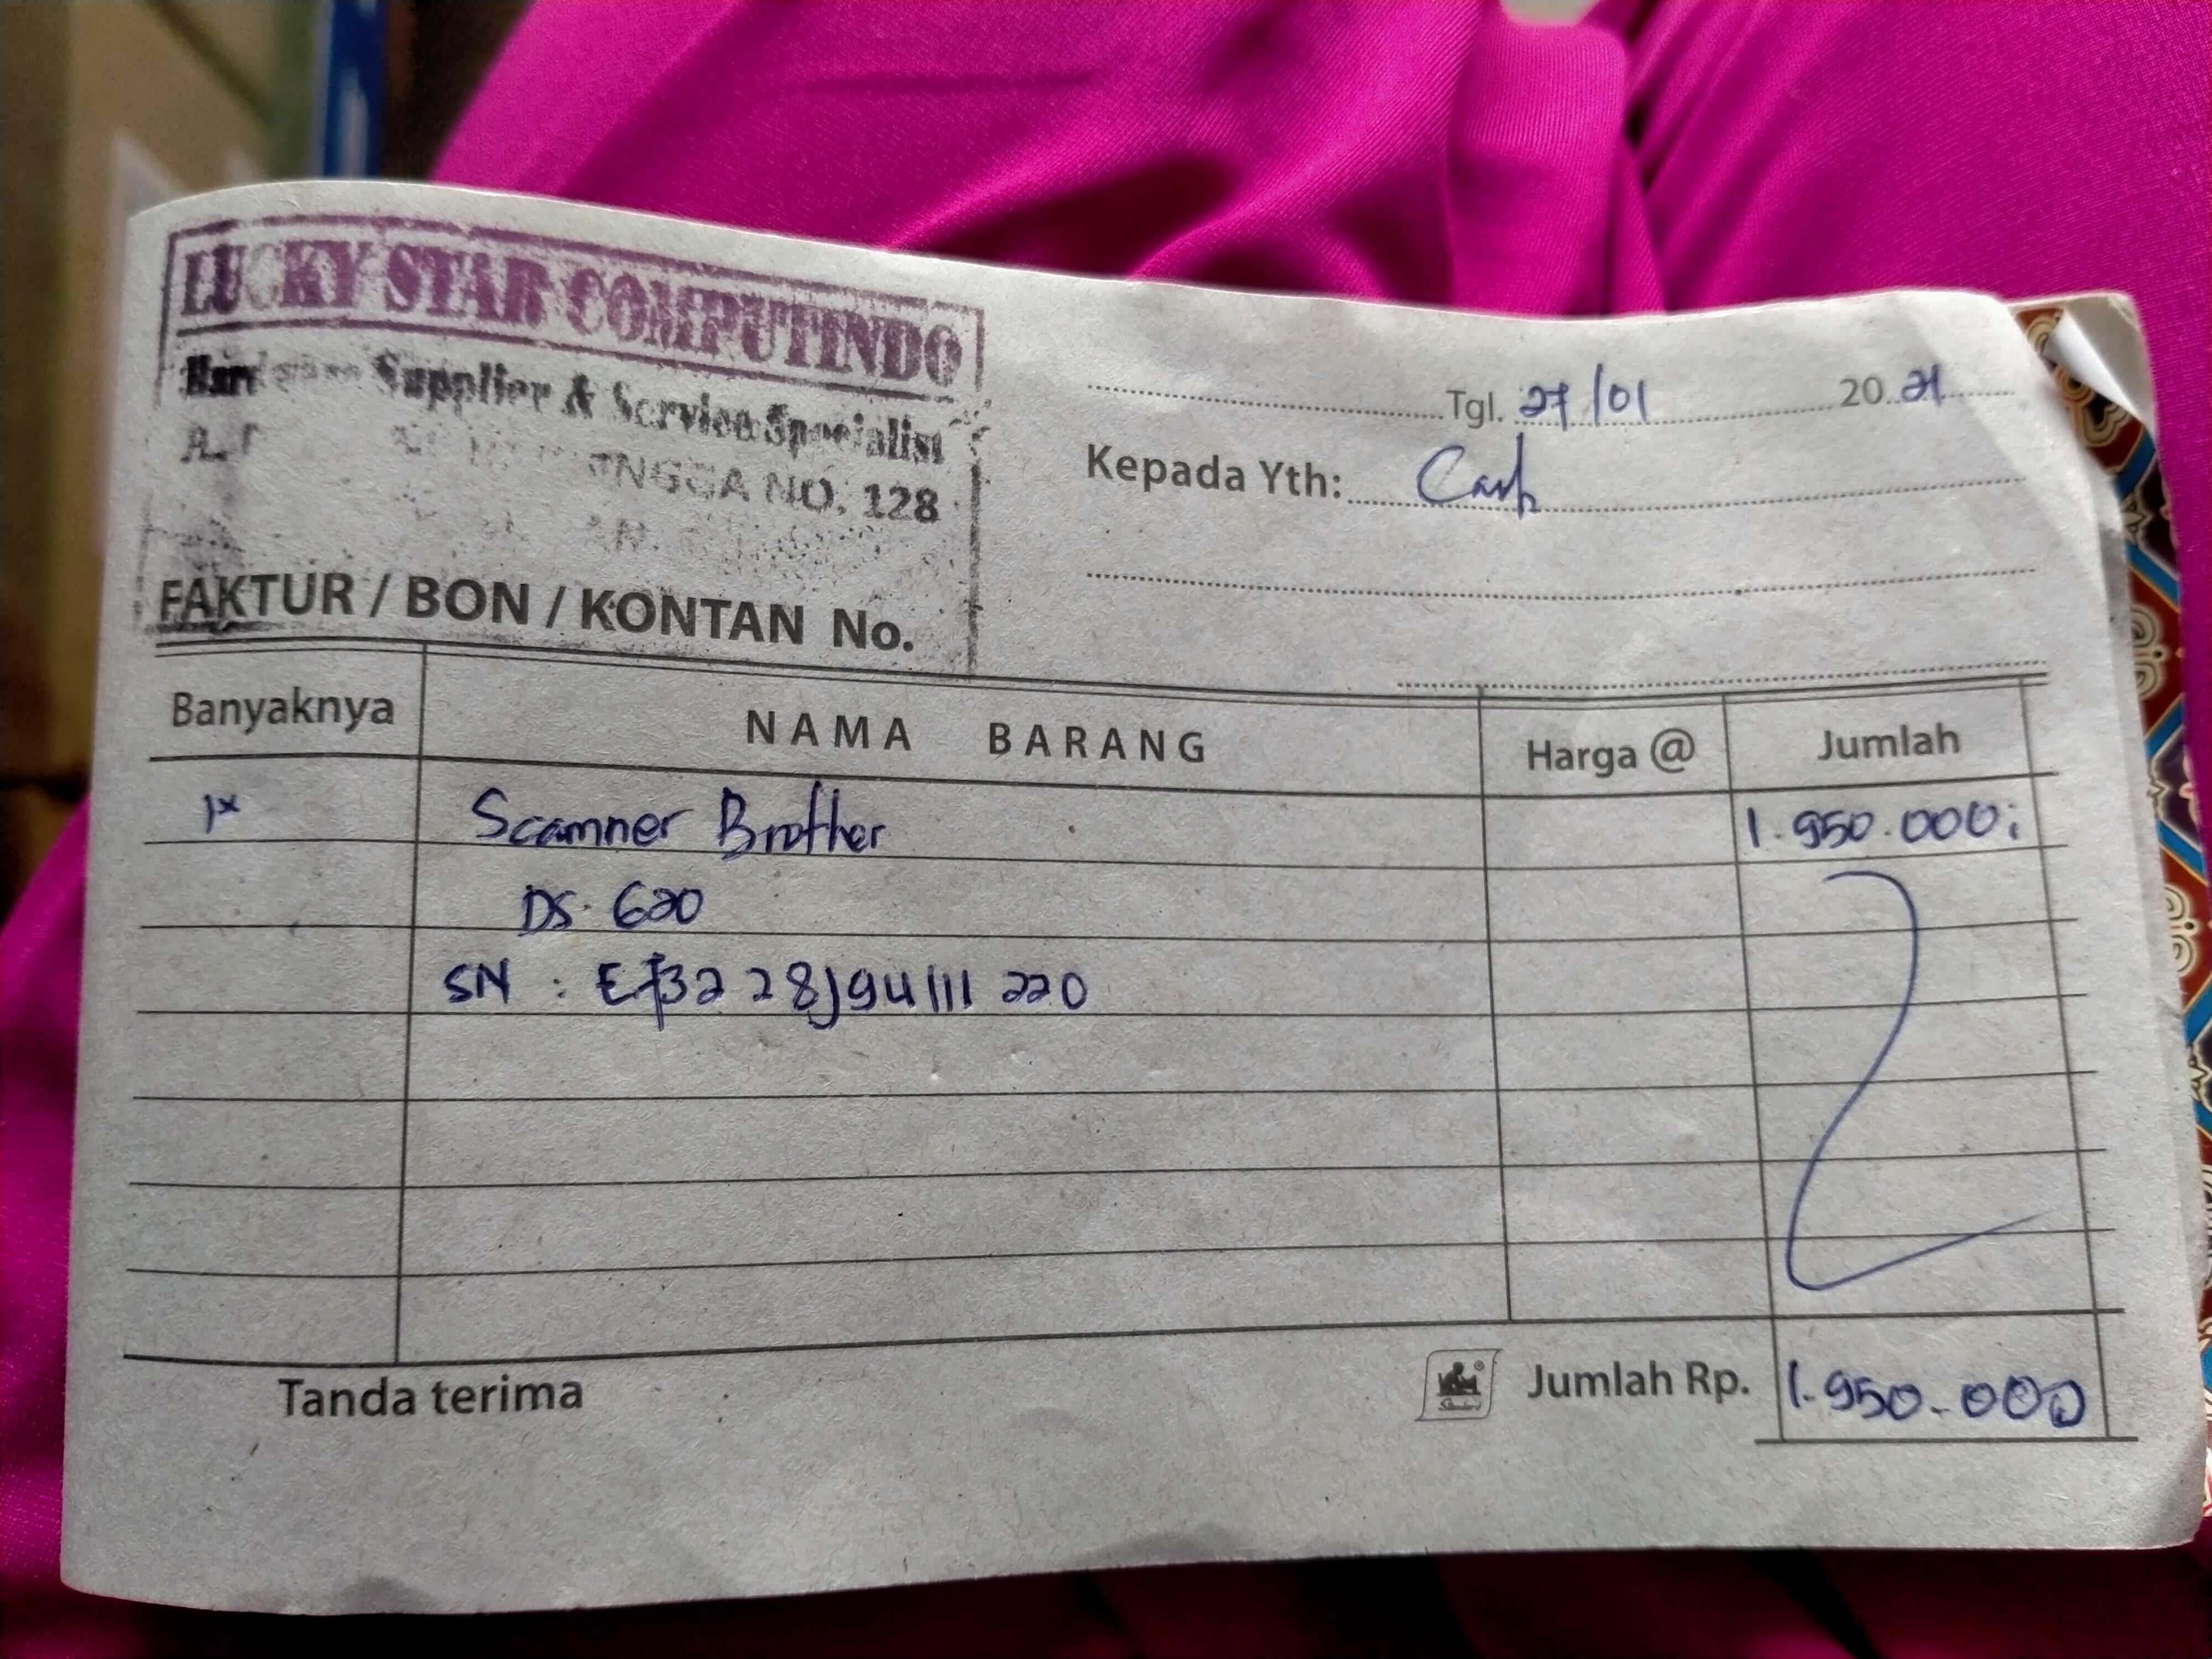 LUCKY STAR COMPUTINDO
Hardware Supplier & Service Specialist
NO. 128
Tgl. 27/01 20.21
Kepada Yth: Cash
FAKTUR / BON / KONTAN No.
Banyaknya NAMA BARANG Harga @ Jumlah
1x Scanner Brother 1.950.000;
DS. 620
SN :
Tanda terima Jumlah Rp. 1.950.000